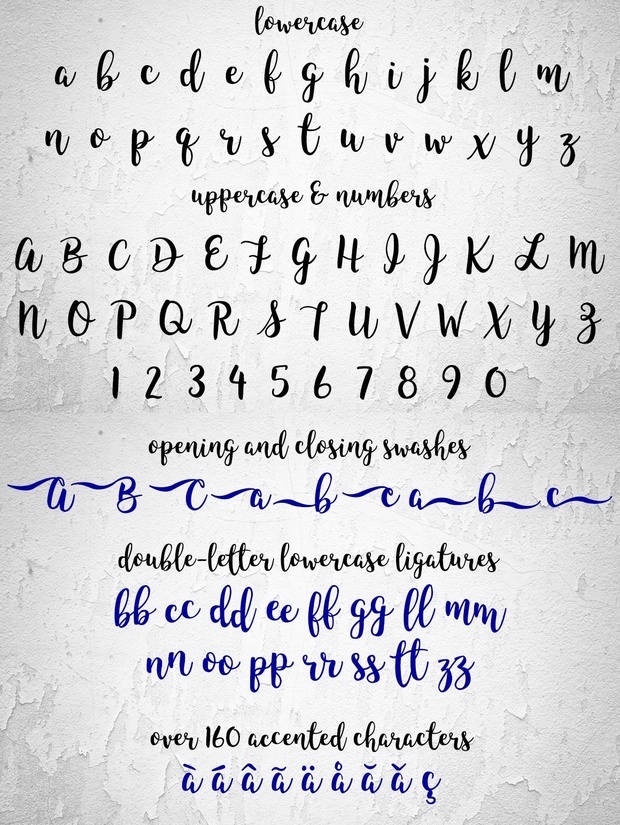 lowercase
a b c d e f g h i j k l m
n o p q r s t u v w x y z
uppercase & numbers
A B C D E F G H I J K L M
N O P Q R S T U V W X Y Z
1 2 3 4 5 6 7 8 9 0
opening and closing swashes
A B C a b c a b c
double-letter lowercase ligatures
bb cc dd ee ff gg ll mm
nn oo pp rr ss tt zz
over 160 accented characters
à á â ã ä å ă ǎ ç